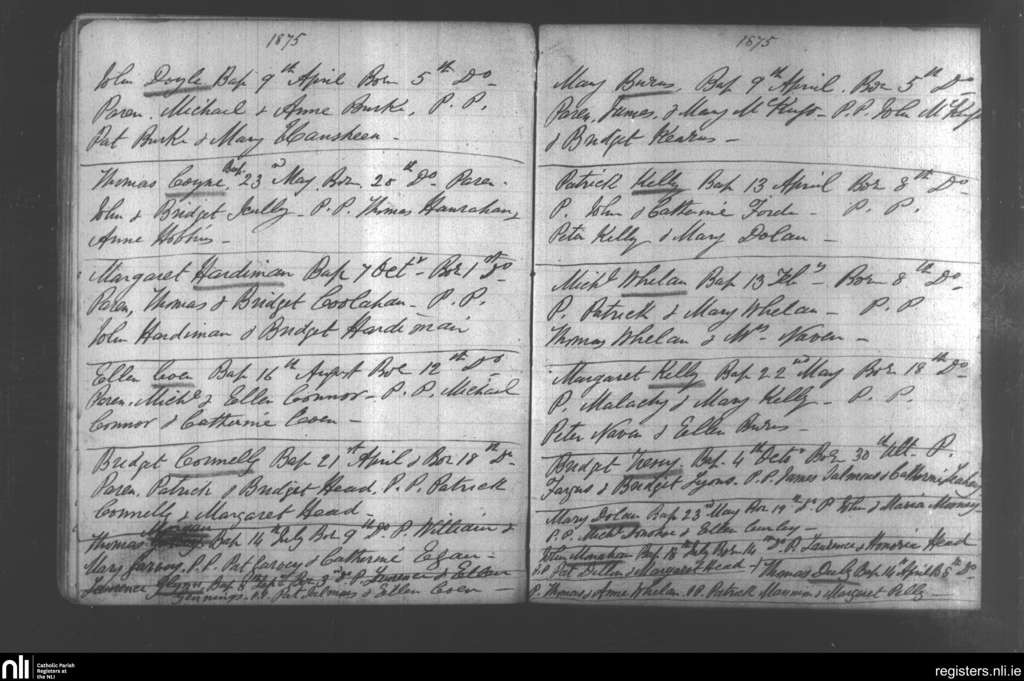 1875
John Doyle Bap 9th April Born 5th Do
Paren. Michael & Anne Burke, P. P.
Pat Burke & Mary
Thomas Coyne Bap 23rd May Bor. 20th Do. Paren.
John & Bridget Scully - P. P. Thomas Hanrahan,
Anne Hobbins -
Margaret Hardiman Bap 7 Octr - Bor 1st Do
Paren, Thomas & Bridget Coolahan - P. P.
John Hardiman & Bridget Hardiman
Ellen Coen Bap 16th August Bor 12th Do
Paren. Michl & Ellen Connor - P. P. Michael
Connor & Catherine Coen -
Bridget Connelly Bap 21st April & Bor 18th Do
Paren, Patrick & Bridget Head. P. P. Patrick
Connelly & Margaret Head -
Thomas Bap 14th July Bor 9th Do P. William &
Mary Garvey. P. P. Pat Garvey & Catherine Egan -
Lawrence Glynn Bap 8th Bor 3rd Do P. Laurence & Ellen
Jennings. P.P. Pat & Ellen Coen -
1875
Mary Burns, Bap 9th April, Bor 5th Do
Paren, James, & Mary McHugo - P.P. John McHugo
& Bridget Kearns -
Patrick Kelly Bap 13 April Bor 8th Do
P. John & Catherine Forde - P. P.
Peter Kelly & Mary Dolan -
Michl Whelan Bap 13 - Born 8th Do
P. Patrick & Mary Whelan - P. P
Thomas Whelan & Mrs Naven -
Margaret Kelly Bap 22nd May Bor 18th Do
P. Malachy & Mary Kelly - P. P.
Peter Naven & Ellen Burns -
Bridget Bap. 4th Octr Bor 30th Ult. P.
Fargus & Bridget Lyons. P.P. James & Catherine
Mary Dolan Bap 23rd May Bor 19th Do P John & Maria Mooney
P.P. Michl Donohoe & Ellen Curley -
John Monahan Bap 18th July Bor 14th Do. P. Laurence & Honoria Head
P.P Pat Dillon & Margaret Head - Thomas Daly Bap 14th April B 5th Do
P. Thomas & Anne Whelan. P.P. Patrick Mannion & Margaret Kelly -
nli
Catholic Parish
Registers at
the NLI
registers.nli.ie